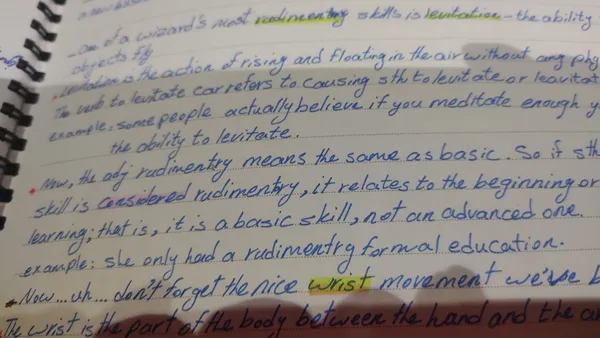 a new basis
...One of a wizard's most rudimentry skills is levitation - the ability
objects fly
Levitation is the action of rising and floating in the air without any phy
The verb to levitate car refers to causing sth to levitate or leavitat
example: some people actually believe if you meditate enough y
the ability to levitate.
Now, the adj rudimentry means the same as basic. So if sth
skill is considered rudimentry, it relates to the beginning or
learning; that is, it is a basic skill, not an advanced one.
example: she only had a rudimentry formal education.
Now...uh... don't forget the nice wrist movement we've b
The wrist is the part of the body between the hand and the a